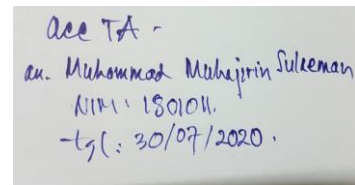 acc TA -
an. Muhammad Muhajirin Suleeman
NIM : 1801011.
tgl : 30/07/2020.